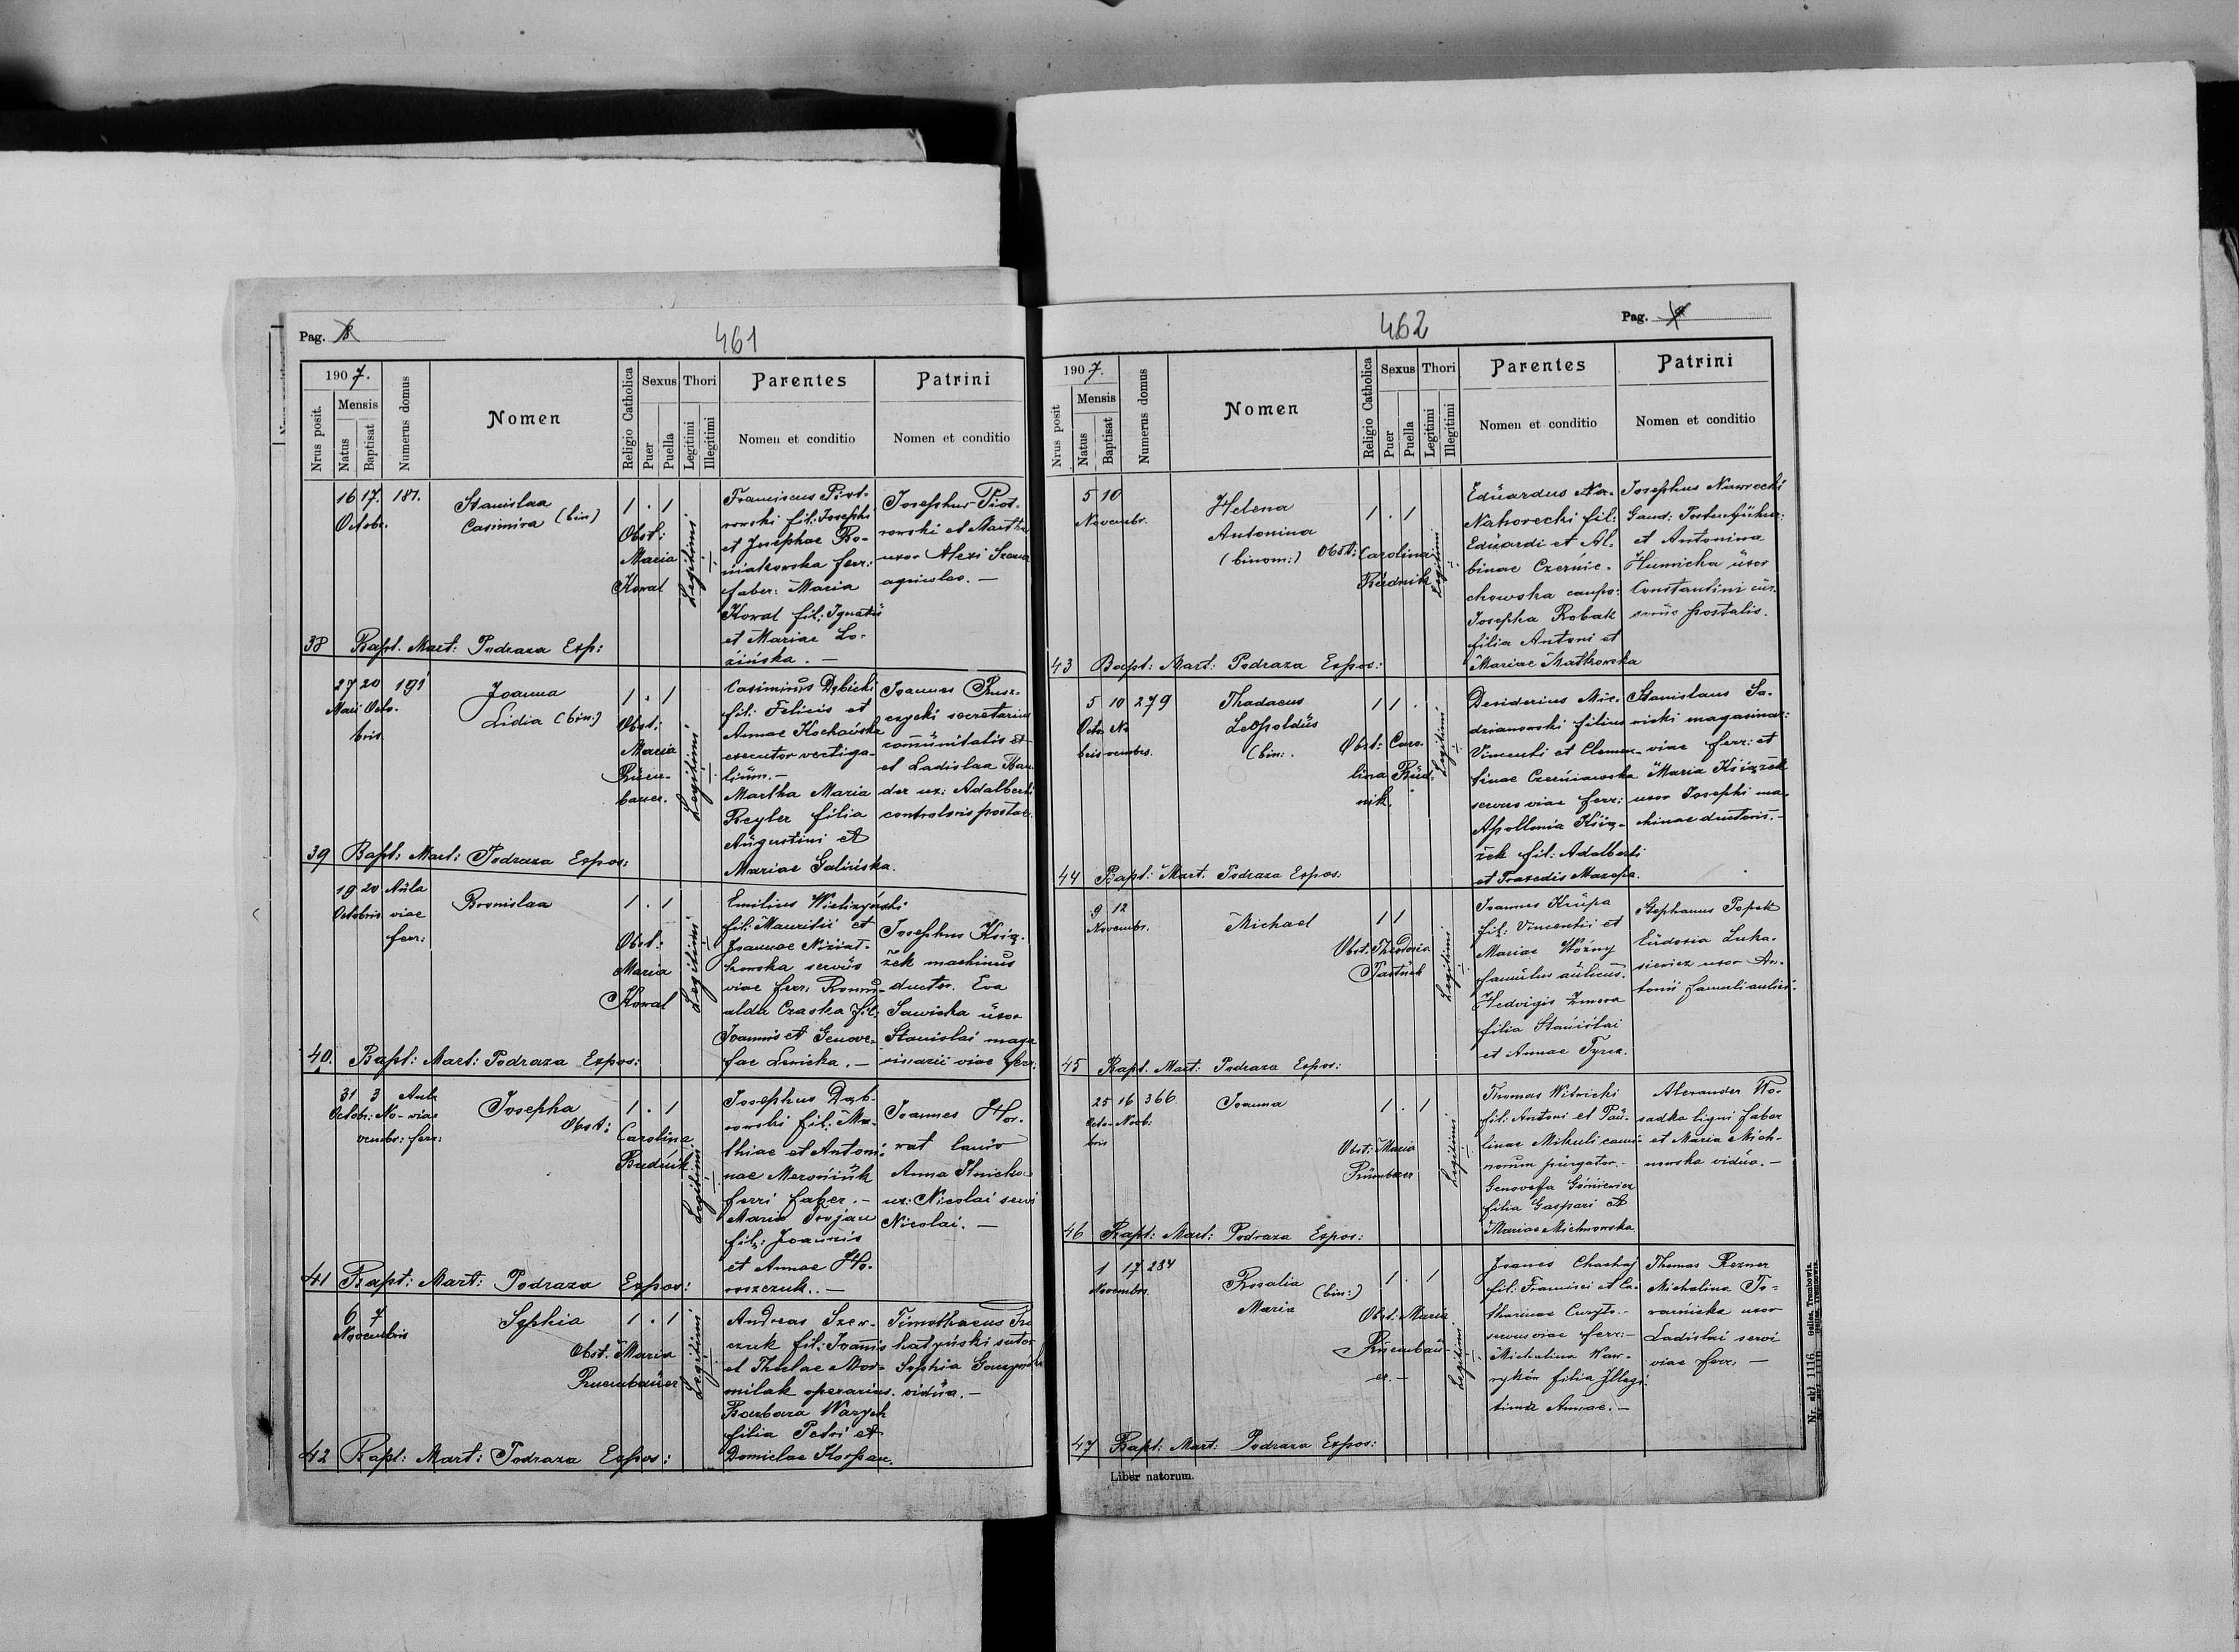 Pag. 8
461
1907.
Nrus posit.
Mensis
Natus
Baptisat
Numerus domus
Nomen
Religio Catholica
Sexus
Puer
Puella
Thori
Legitimi
Illegitimi
Parentes
Nomen et conditio
Patrini
Nomen et conditio
16 17. 187.
Octobr.
Stanislaa
Casimira (bin)
1 . 1
Obst:
Maria
Kowal
Legitimi
Franciscus Piot-
rowski fil: Josephi
et Josephae Bo-
niakowska ferr:
faber: Maria
Kowal fil: Ignatii
et Mariae Lo-
zińska. —
Josephus Piot-
rowski et Martha
uxor Alexi
38 Bapt. Mart: Podraza Exp:
27 20 191
Maii Octo-
bris
Joanna
Lidia (bin:)
1 . 1
Obst:
Maria
Ruem-
bauer.
Legitimi
Casimirus Dębicki
fil: Felicis et
Annae Kochańska
executor vectiga-
lium. —
Martha Maria
Reyler filia
Augustini et
Mariae Galińska.
Joannes Rusz-
czycki secretarius
communitatis et
et Ladislaa
der ux: Adalberti
controloris postae.
39 Bapt: Mart: Podraza Expos:
19 20 Aula
Octobris viae
ferr:
Bronislaa
1 . 1
Obst:
Maria
Kowal
Legitimi
Emilius Wieliczyński
fil: Mauritii et
Joannae Niziat-
kowska servus
viae ferr: Romu-
alda Czaska fil:
Joannis et Genove-
fae Lenicka. —
Josephus Ksią-
żek machinus
ductor. Eva
Sawicka uxor
Stanislai maga
sinarii viae ferr:
40. Bapt: Mart: Podraza Expos:
31 3 Aula
Octobr: No- viae
vembr: ferr:
Josepha
Obst:
1 . 1
Carolina
Rudnik
Legitimi
Josephus Dąb-
rowski fil: Ma-
thiae et Antoni-
nae Meroniuk
ferri faber. —
Maria Trojan
fil: Joannis
et Annae Ho-
roszczuk. . —
Joannes Hor-
wat lanio
Anna Ilnicka
ux: Nicolai servi
Nicolai. —
41 Bapt: Mart: Podraza Expos:
6 7
Novembris
Sophia
1 . 1
Obst: Maria
Ruembauer
Legitimi
Andreas Szew-
czuk fil: Joannis
et Theclae Mor-
milak operarius.
Barbara Warych
filia Petri et
Domiclae Korpan.
Timothaeus
hatyński sutor
Sophia
vidua. —
42 Bapt: Mart: Podraza Expos:
462
Pag. 9
1907.
Nrus posit
Mensis
Natus
Baptisat
Numerus domus
Nomen
Religio Catholica
Sexus
Puer
Puella
Thori
Legitimi
Illegitimi
Parentes
Nomen et conditio
Patrini
Nomen et conditio
5 10
Novembr.
Helena
Antonina
(binom:)
1 . 1
Obst: Carolina
Rudnik
Legitimi
Eduardus Na-
Nahorecki fil:
Eduardi et Al-
binae Czernie-
chowska caupo:
Josepha Robak
filia Antoni et
Mariae Matkowska
Josephus Nawrocki
Gand: Postenführer:
et Antonina
Humicka uxor
Constantini cur-
postalis.
43 Bapt: Mart: Podraza Expos:
5 10 279
Octo No
bris vembr.
Thadaeus
Leopoldus
(bin: .
1 1 .
Obst: Caro-
lina Rud-
nik.
Legitimi
Desiderius Mie-
dzianowski filius
Vincenti et Clemen-
tinae Czerniawska
servus viae ferr:
Apollonia Ksią-
żek fil: Adalberti
et Praxedis Mazepa.
Stanislaus Sa-
wicki magasinar:
viae ferr: et
Maria Książek
uxor Josephi ma-
chinae ductoris. —
44 Bapt: Mart. Podraza Expos:
9 12
Novembr.
Michael
1 1
Obst: Theodosia
Pastuch
Legitimi
Joannes Krupa
fil: Vincentii et
Mariae Woźny
famulus aulicus.
Hedvigis Zmora
filia Stanislai
et Annae Tyrcz.
Stephanus Popek
Eudosia Luka-
siewicz uxor An-
tonii famuli aulici.
45 Bapt. Mart: Podraza Expos:
25 16 366.
Octo- Novb:
bris
Joanna
1 . 1
Obst: Maria
Rumbauer
Legitimi
Thomas Witwicki
fil: Antoni et Pau-
linae Mikuli cami-
norum purgator. —
Genovefa Góniewicz
filia Gaspari et
Mariae Michnowska
Alexander Wo-
sadka ligni faber
et Maria Mich-
nowska vidua. —
46 Bapt: Mart: Podraza Expos:
1 17 234
Novembr.
Rosalia
Maria
(bin:)
1 . 1
Obst: Maria
Ruembau-
er. —
Legitimi
Joanes Chachaj
fil: Francisci et Ca-
tharinae Curyło. —
servus viae ferr: —
Michalina Waw-
rykón filia Illegi-
tima Annae. —
Thomas Rezner
Michalina To-
warnicka uxor
Ladislai servi
viae ferr: —
47 Bapt: Mart: Podraza Expos:
Liber natorum.
Nr. skl. 1116. Gellee, Trembowla.